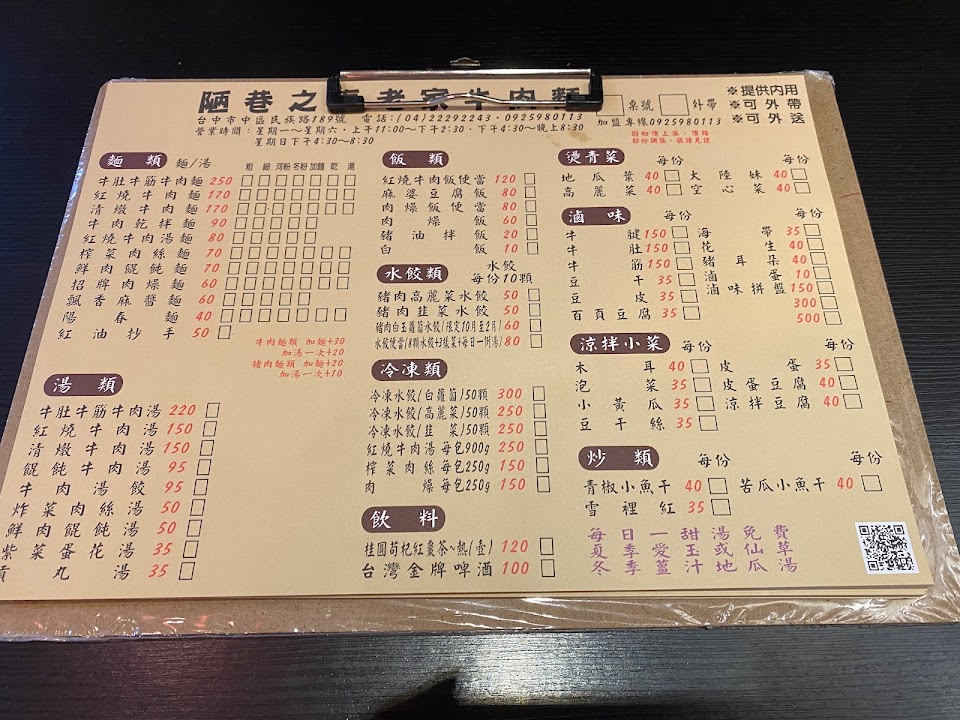 陋巷之春老家牛肉麵
台中市中區民族路189號 電話:(04)22292243・0925980113
營業時間：星期一～星期六・上午11:00～下午2:30・下午4:30～晚上8:30
星期日下午4:30～8:30
桌號 外帶
加盟專線0925980113
因物價上漲，價格
部份調漲，敬請見諒
※提供內用
※可外帶
※可外送
麵類 麵/湯 粗 細 河粉 冬粉 加麵 乾 湯
牛肚牛筋牛肉麵 250
紅燒牛肉麵 170
清燉牛肉麵 170
牛肉乾拌麵 90
紅燒牛肉湯麵 80
榨菜肉絲麵 70
鮮肉餛飩麵 70
招牌肉燥麵 60
飄香麻醬麵 60
陽春麵 40
紅油抄手 50
牛肉麵類 加麵+30
加湯一次+20
豬肉麵類 加麵+20
加湯一次+10
湯類
牛肚牛筋牛肉湯 220
紅燒牛肉湯 150
清燉牛肉湯 150
餛飩牛肉湯 95
牛肉湯餃 95
炸菜肉絲湯 50
鮮肉餛飩湯 50
紫菜蛋花湯 35
貢丸湯 35
飯類
紅燒牛肉飯便當 120
麻婆豆腐飯 80
肉燥飯便當 80
肉燥飯 60
豬油拌飯 20
白飯 10
水餃類 水餃
每份10顆
豬肉高麗菜水餃 50
豬肉韭菜水餃 50
豬肉白玉蘿蔔水餃(限定10月至2月) 60
水餃便當(8顆水餃+3樣菜+每日一例湯) 80
冷凍類
冷凍水餃(白蘿蔔)50顆 300
冷凍水餃(高麗菜)50顆 250
冷凍水餃(韭菜)50顆 250
紅燒牛肉湯每包900g 250
榨菜肉絲每包250g 150
肉燥每包250g 150
飲料
桂圓荀杞紅棗茶~熱(壺) 120
台灣金牌啤酒 100
燙青菜 每份 每份
地瓜葉 40 大陸妹 40
高麗菜 40 空心菜 40
滷味 每份 每份
牛腱 150 海帶 35
牛肚 150 花生 40
牛筋 150 豬耳朵 40
豆干 35 滷蛋 10
豆皮 35 滷味拼盤 150
百頁豆腐 35 300
500
涼拌小菜 每份 每份
木耳 40 皮蛋 35
泡菜 35 皮蛋豆腐 40
小黃瓜 35 涼拌豆腐 40
豆干絲 35
炒類 每份 每份
青椒小魚干 40 苦瓜小魚干 40
雪裡紅 35
每日一甜湯免費
夏季愛玉或仙草
冬季薑汁地瓜湯